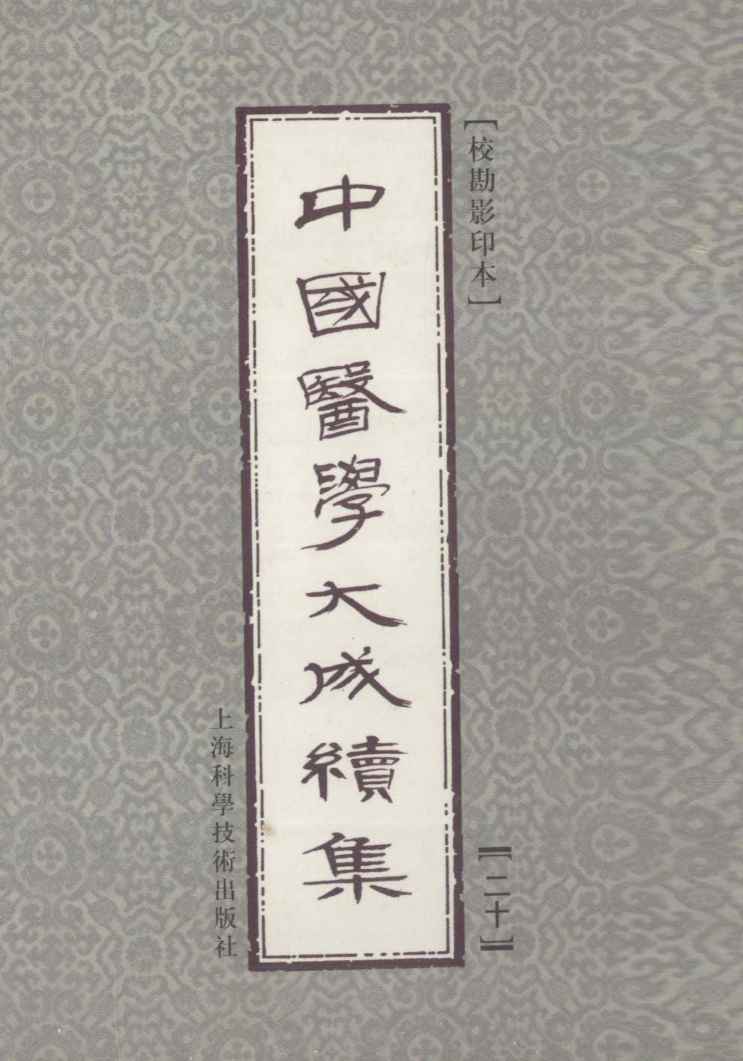 【校勘影印本】
中國醫學大成續集
【二十】
上海科學技術出版社